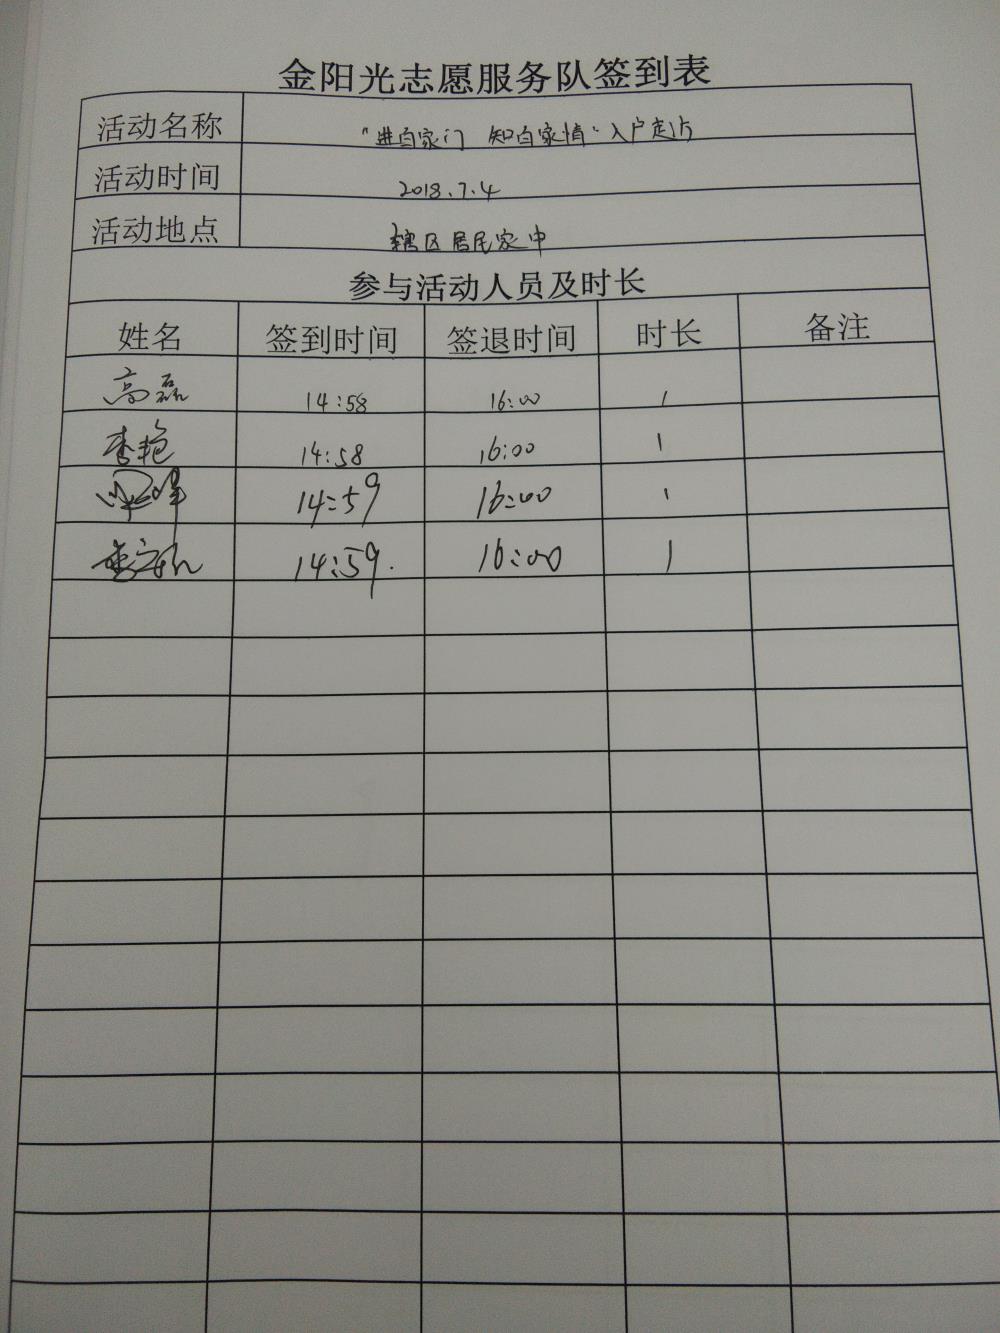 金阳光志愿服务队签到表
活动名称 "进百家门 知百家情"入户走访
活动时间 2018.7.4
活动地点 辖区居民家中
参与活动人员及时长
姓名 签到时间 签退时间 时长 备注
高磊 14:58 16:00 1
李艳 14:58 16:00 1
14:59 16:00 1
14:59. 16:00 1